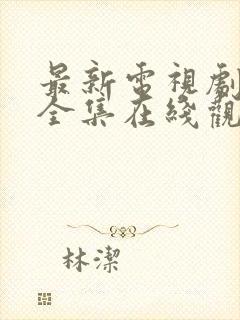 最新電視劇
全集在綫觀
林潔